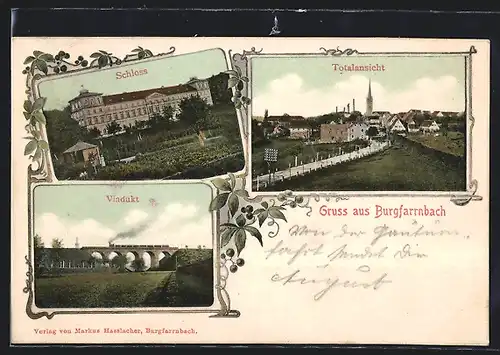 Schloss
Totalansicht
Viadukt
Gruss aus Burgfarrnbach
Von der
fahrt sendet die
Verlag von Markus Hasslacher, Burgfarrnbach.